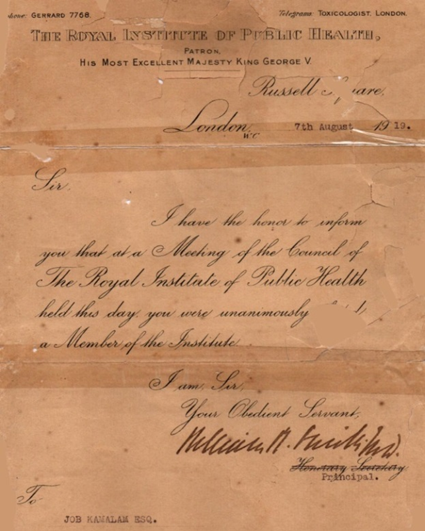 GERRARD 7768. Telegrams TOXICOLOGIST, LONDON.
THE ROYAL INSTITUTE OF PUBLIC HEALTH,
PATRON,
HIS MOST EXCELLENT MAJESTY KING GEORGE V.
Russell
London, W.C. 7th August 1919.
Sir,
I have the honor to inform
you that at a Meeting of the Council of
The Royal Institute of Public Health
held this day you were unanimously
a Member of the Institute
I am Sir,
Your Obedient Servant,
William R. Smith M.D.
Honorary Secretary
Principal.
To
JOB KAMALAM ESQ.